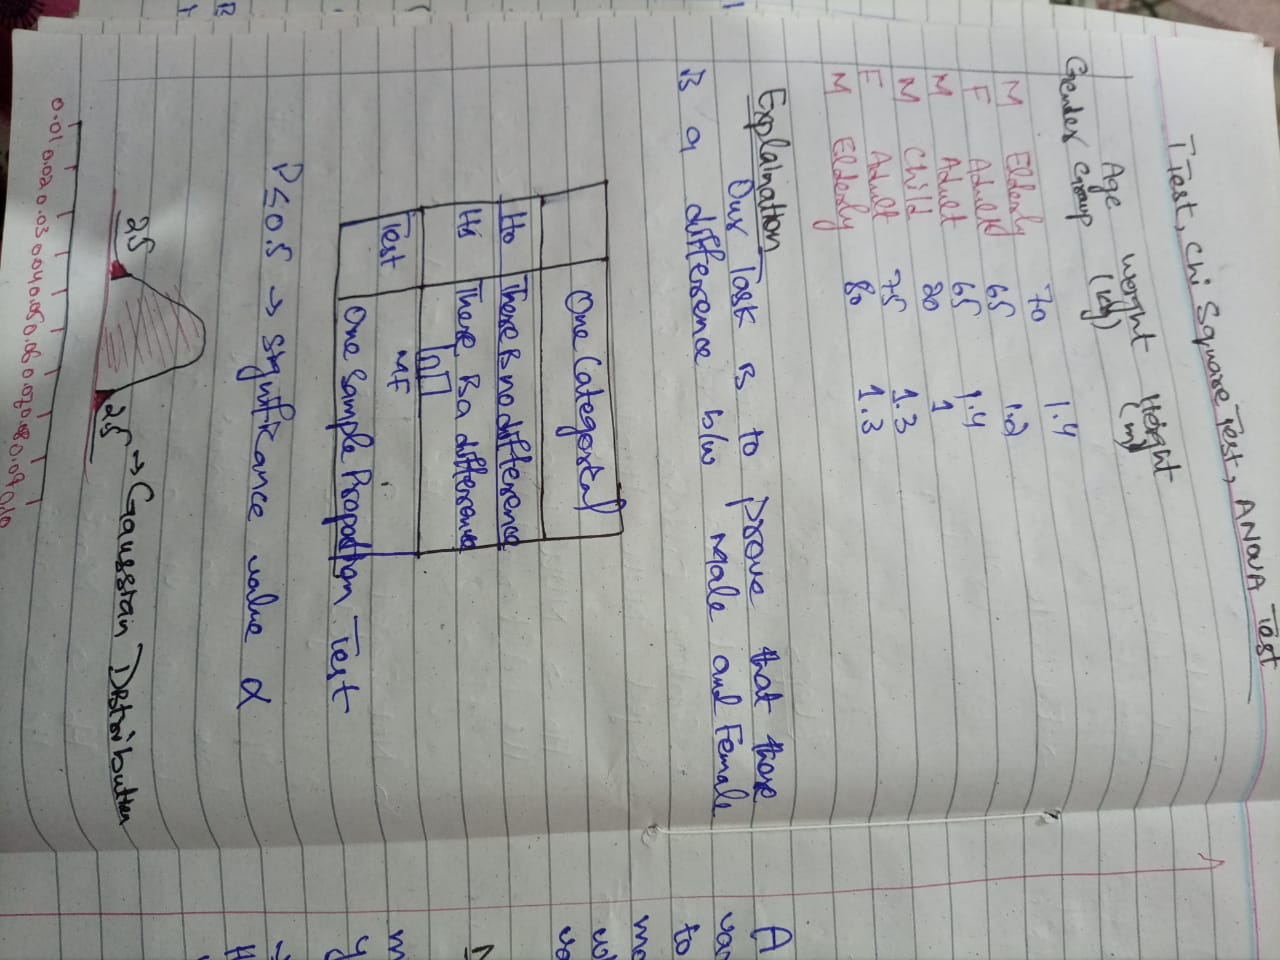 T Test, Chi Square Test, ANOVA Test
Gender Age Group Weight (kg) Height (m)
M Elderly 70 1.4
F Adult 65 1.2
M Adult 65 1.4
M Child 20 1
F Adult 75 1.3
M Elderly 80 1.3
Explaination
Our Task is to prove that there
is a difference b/w Male and Female
One Categorical
Ho There is no difference
H1 There is a difference
M F
Test
One Sample Proportion Test
P ≤ 0.5 → significance value α
25
25 → Gaussian Distribution
0.01 0.02 0.03 0.04 0.05 0.06 0.07 0.08 0.09 0.10
A
to